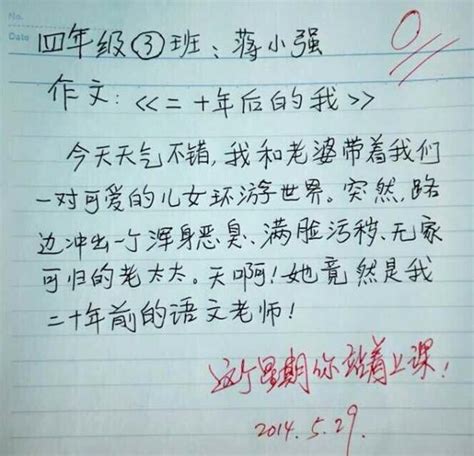 No.
Date
四年级③班：蒋小强
0
作文：<<二十年后的我>>
今天天气不错，我和老婆带着我们
一对可爱的儿女环游世界。突然，路
边冲出一个浑身恶臭、满脸污秽、无家
可归的老太太。天啊！她竟然是我
二十年前的语文老师！
这个星期你站着上课！
2014.5.29.